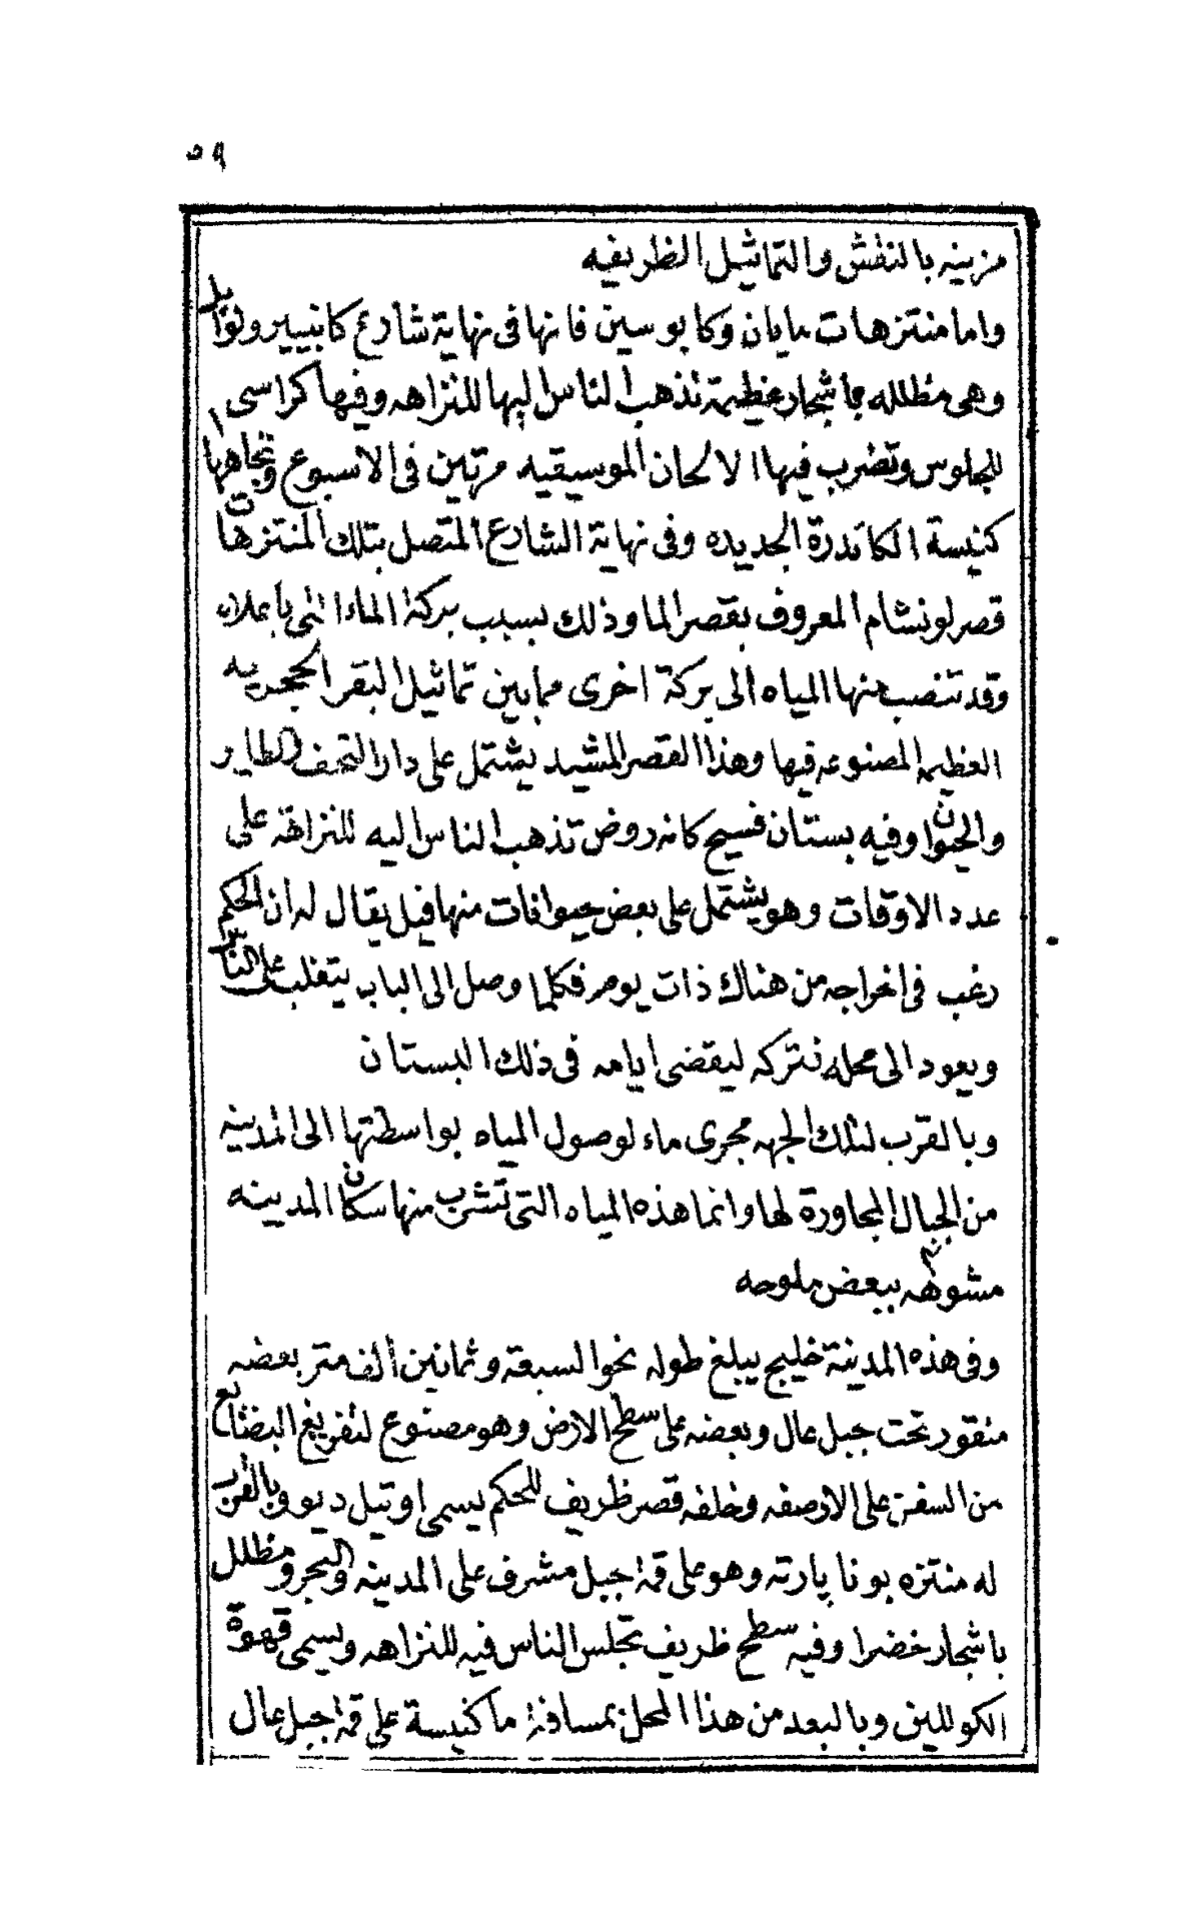 ٥٩
مزينه بالنقش والتماثيل الظريفيه
واما منتزهات مايان وكابوسين فانها فى نهاية شارع كانبيير ونواييل
وهى مظلله باشجار عظيمة تذهب الناس اليها للنزاهه وفيها كراسى
للجلوس وتضرب فيها الالحان الموسيقيه مرتين فى الاسبوع وتجاهها
كنيسة الكاتدرة الجديده وفى نهاية الشارع المتصل بتلك المنتزهات
قصر لونشام المعروف بقصر الما وذلك بسبب بركة الماء التى باعلاه
وقد تنصب منها المياه الى بركة اخرى مما بين تماثيل البقر الحجريه
العظيمه المصنوعه فيها وهذا القصر المشيد يشتمل على دار التحف والطاير
والحيوان وفيه بستان فسيح كانه روض تذهب الناس اليه للنزاهة على
عدد الاوقات وهو يشتمل على بعض حيوانات منها فيل يقال له ان الحكم
رغب فى اخراجه من هناك ذات يوم فكلما وصل الى الباب يتغلب على الناس
ويعود الى محله فتركه ليقضى ايامه فى ذلك البستان
وبالقرب لتلك الجهه مجرى ماء لوصول المياه بواسطتها الى المدينه
من الجبال المجاورة لها وانما هذه المياه التى تشرب منها سكان المدينه
مشوهه ببعض ملوحه
وفى هذه المدينة خليج يبلغ طوله نحو السبعة وثمانين الف متر بعضه
منقور تحت جبل عال وبعضه على سطح الارض وهو مصنوع لتفريغ البضايع
من السفن على الارصفه وخلفه قصر ظريف للحكم يسمى اوتيل ديو وبالقرب
له منتزه بونا پارته وهو على قمة جبل مشرف على المدينه والبحر ومظلل
باشجار خضرا وفيه سطح ظريف تجلس الناس فيه للنزاهه ويسمى قهوة
الكوللين وبالبعد من هذا المحل بمسافة ما كنيسة على قمة جبل عال